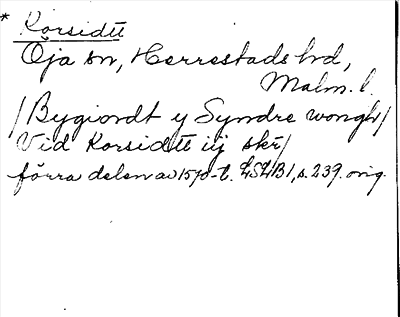 * Korsidtt
Öja sn, Herrestads hd,
Malm. l.
/Bygiordt y Syndre wongh/
Vid Korsidtt iij skr/
förra delen av 1570-t. LSLB1, s. 239. orig.